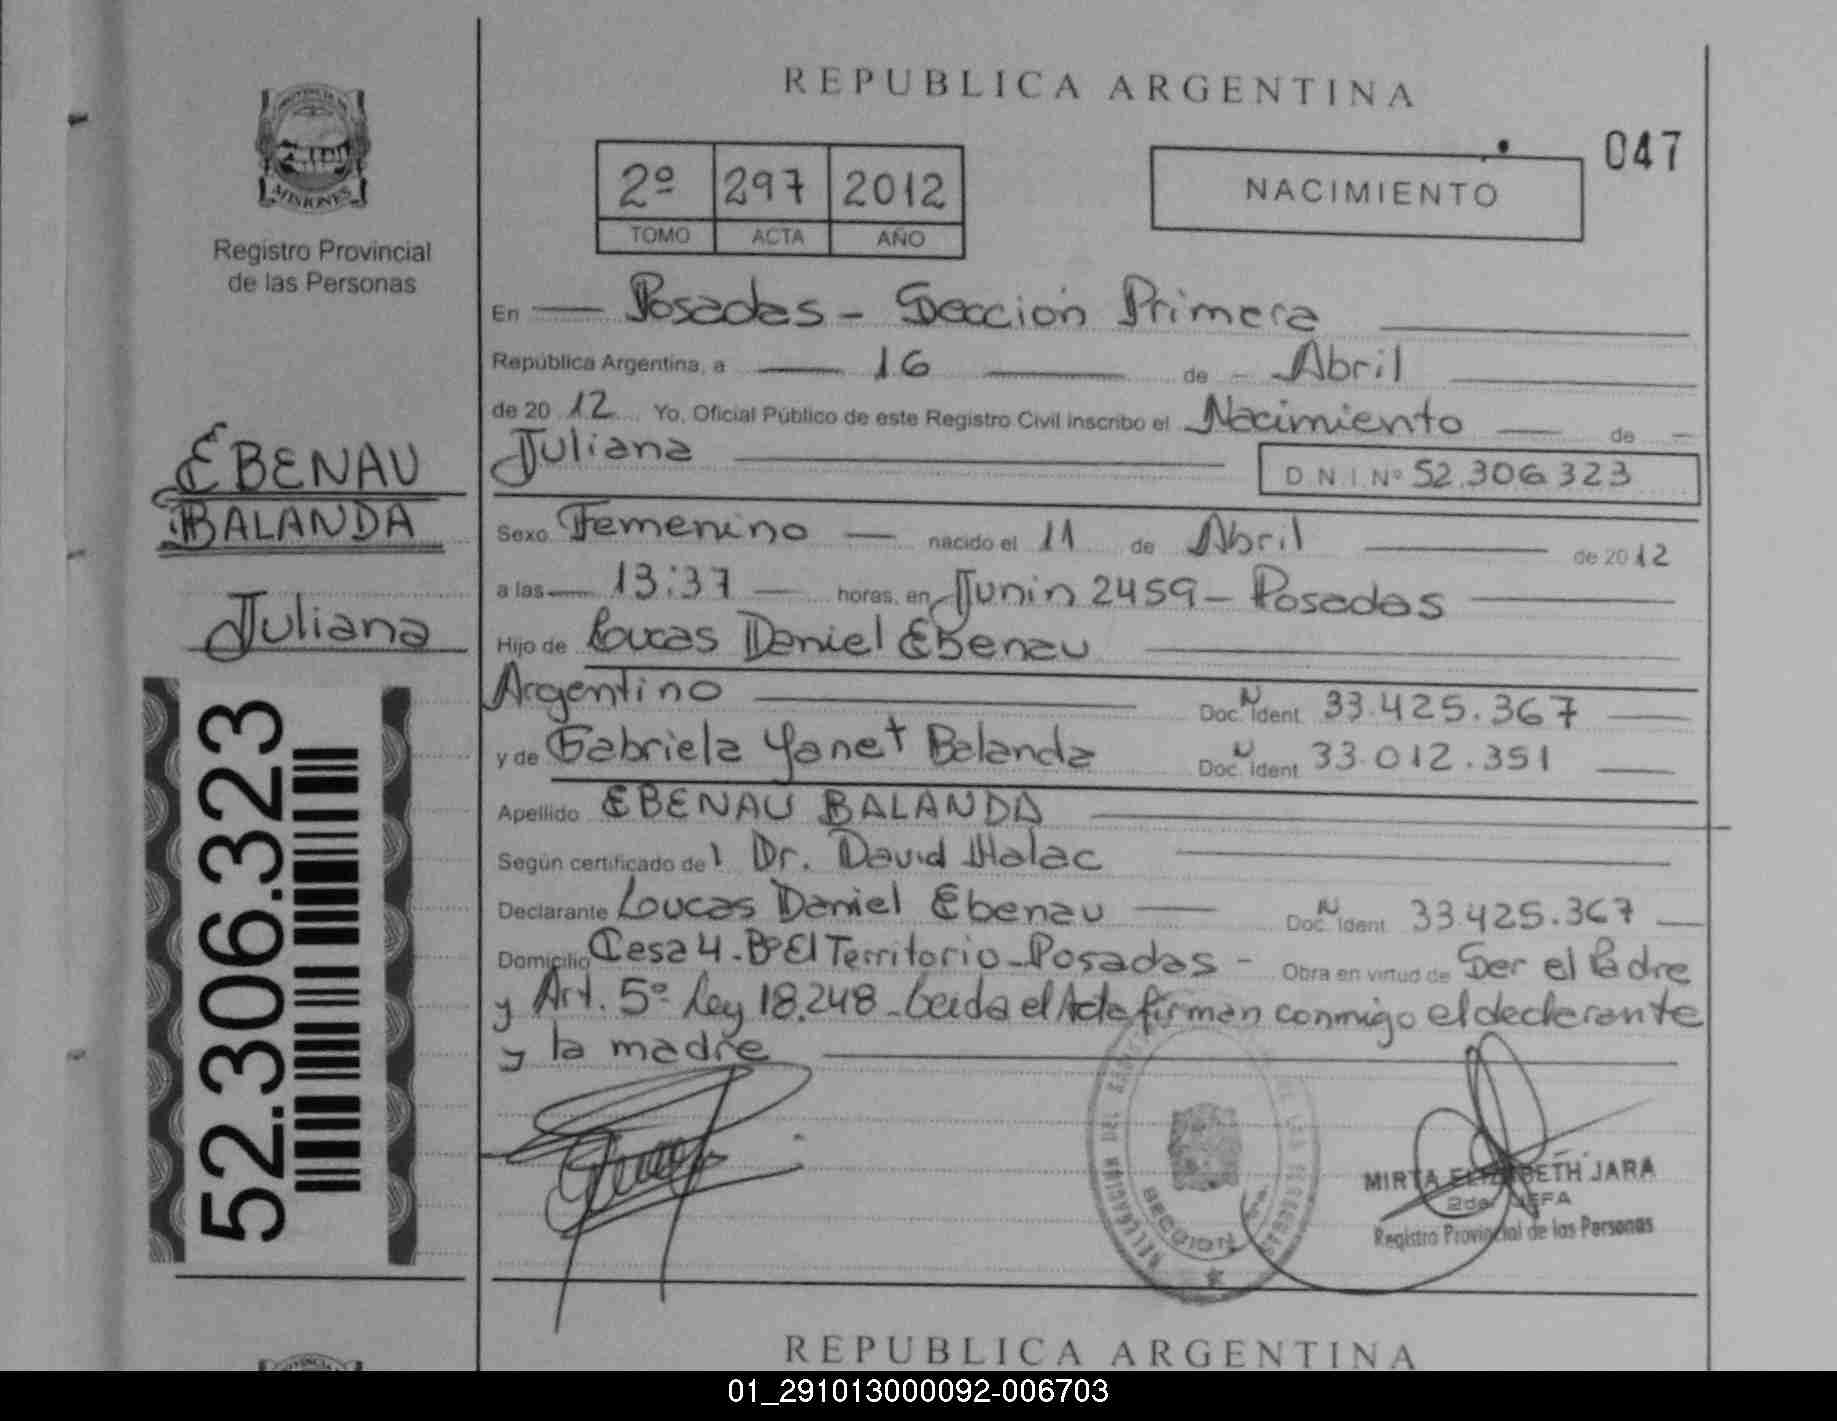 REPUBLICA ARGENTINA
047
2º 297 2012
TOMO ACTA AÑO
NACIMIENTO
MISIONES
Registro Provincial
de las Personas
EBENAU
BALANDA
Juliana
52.306.323
En Posadas - Sección Primera
República Argentina, a 16 de Abril
de 2012 Yo, Oficial Público de este Registro Civil inscribo el Nacimiento de
Juliana
D.N.I. Nº 52.306.323
Sexo Femenino nacido el 11 de Abril de 2012
a las 13:37 horas, en Junin 2459 - Posadas
Hijo de Loucas Daniel Ebenau
Argentino Doc. Ident. N 33.425.367
y de Gabriela Yanet Balanda Doc. Ident. N 33.012.351
Apellido EBENAU BALANDA
Según certificado de Dr. David Halac
Declarante Loucas Daniel Ebenau Doc. Ident. N 33.425.367
Domicilio Casa 4 - Bº El Territorio - Posadas - Obra en virtud de Ser el Padre
y Art. 5º Ley 18.248 - Leida el Acta firman conmigo el declarante
y la madre
SECCION 1ra.
MIRTA ELIZABETH JARA
2da. JEFA
Registro Provincial de las Personas
REPUBLICA ARGENTINA
01_291013000092-006703